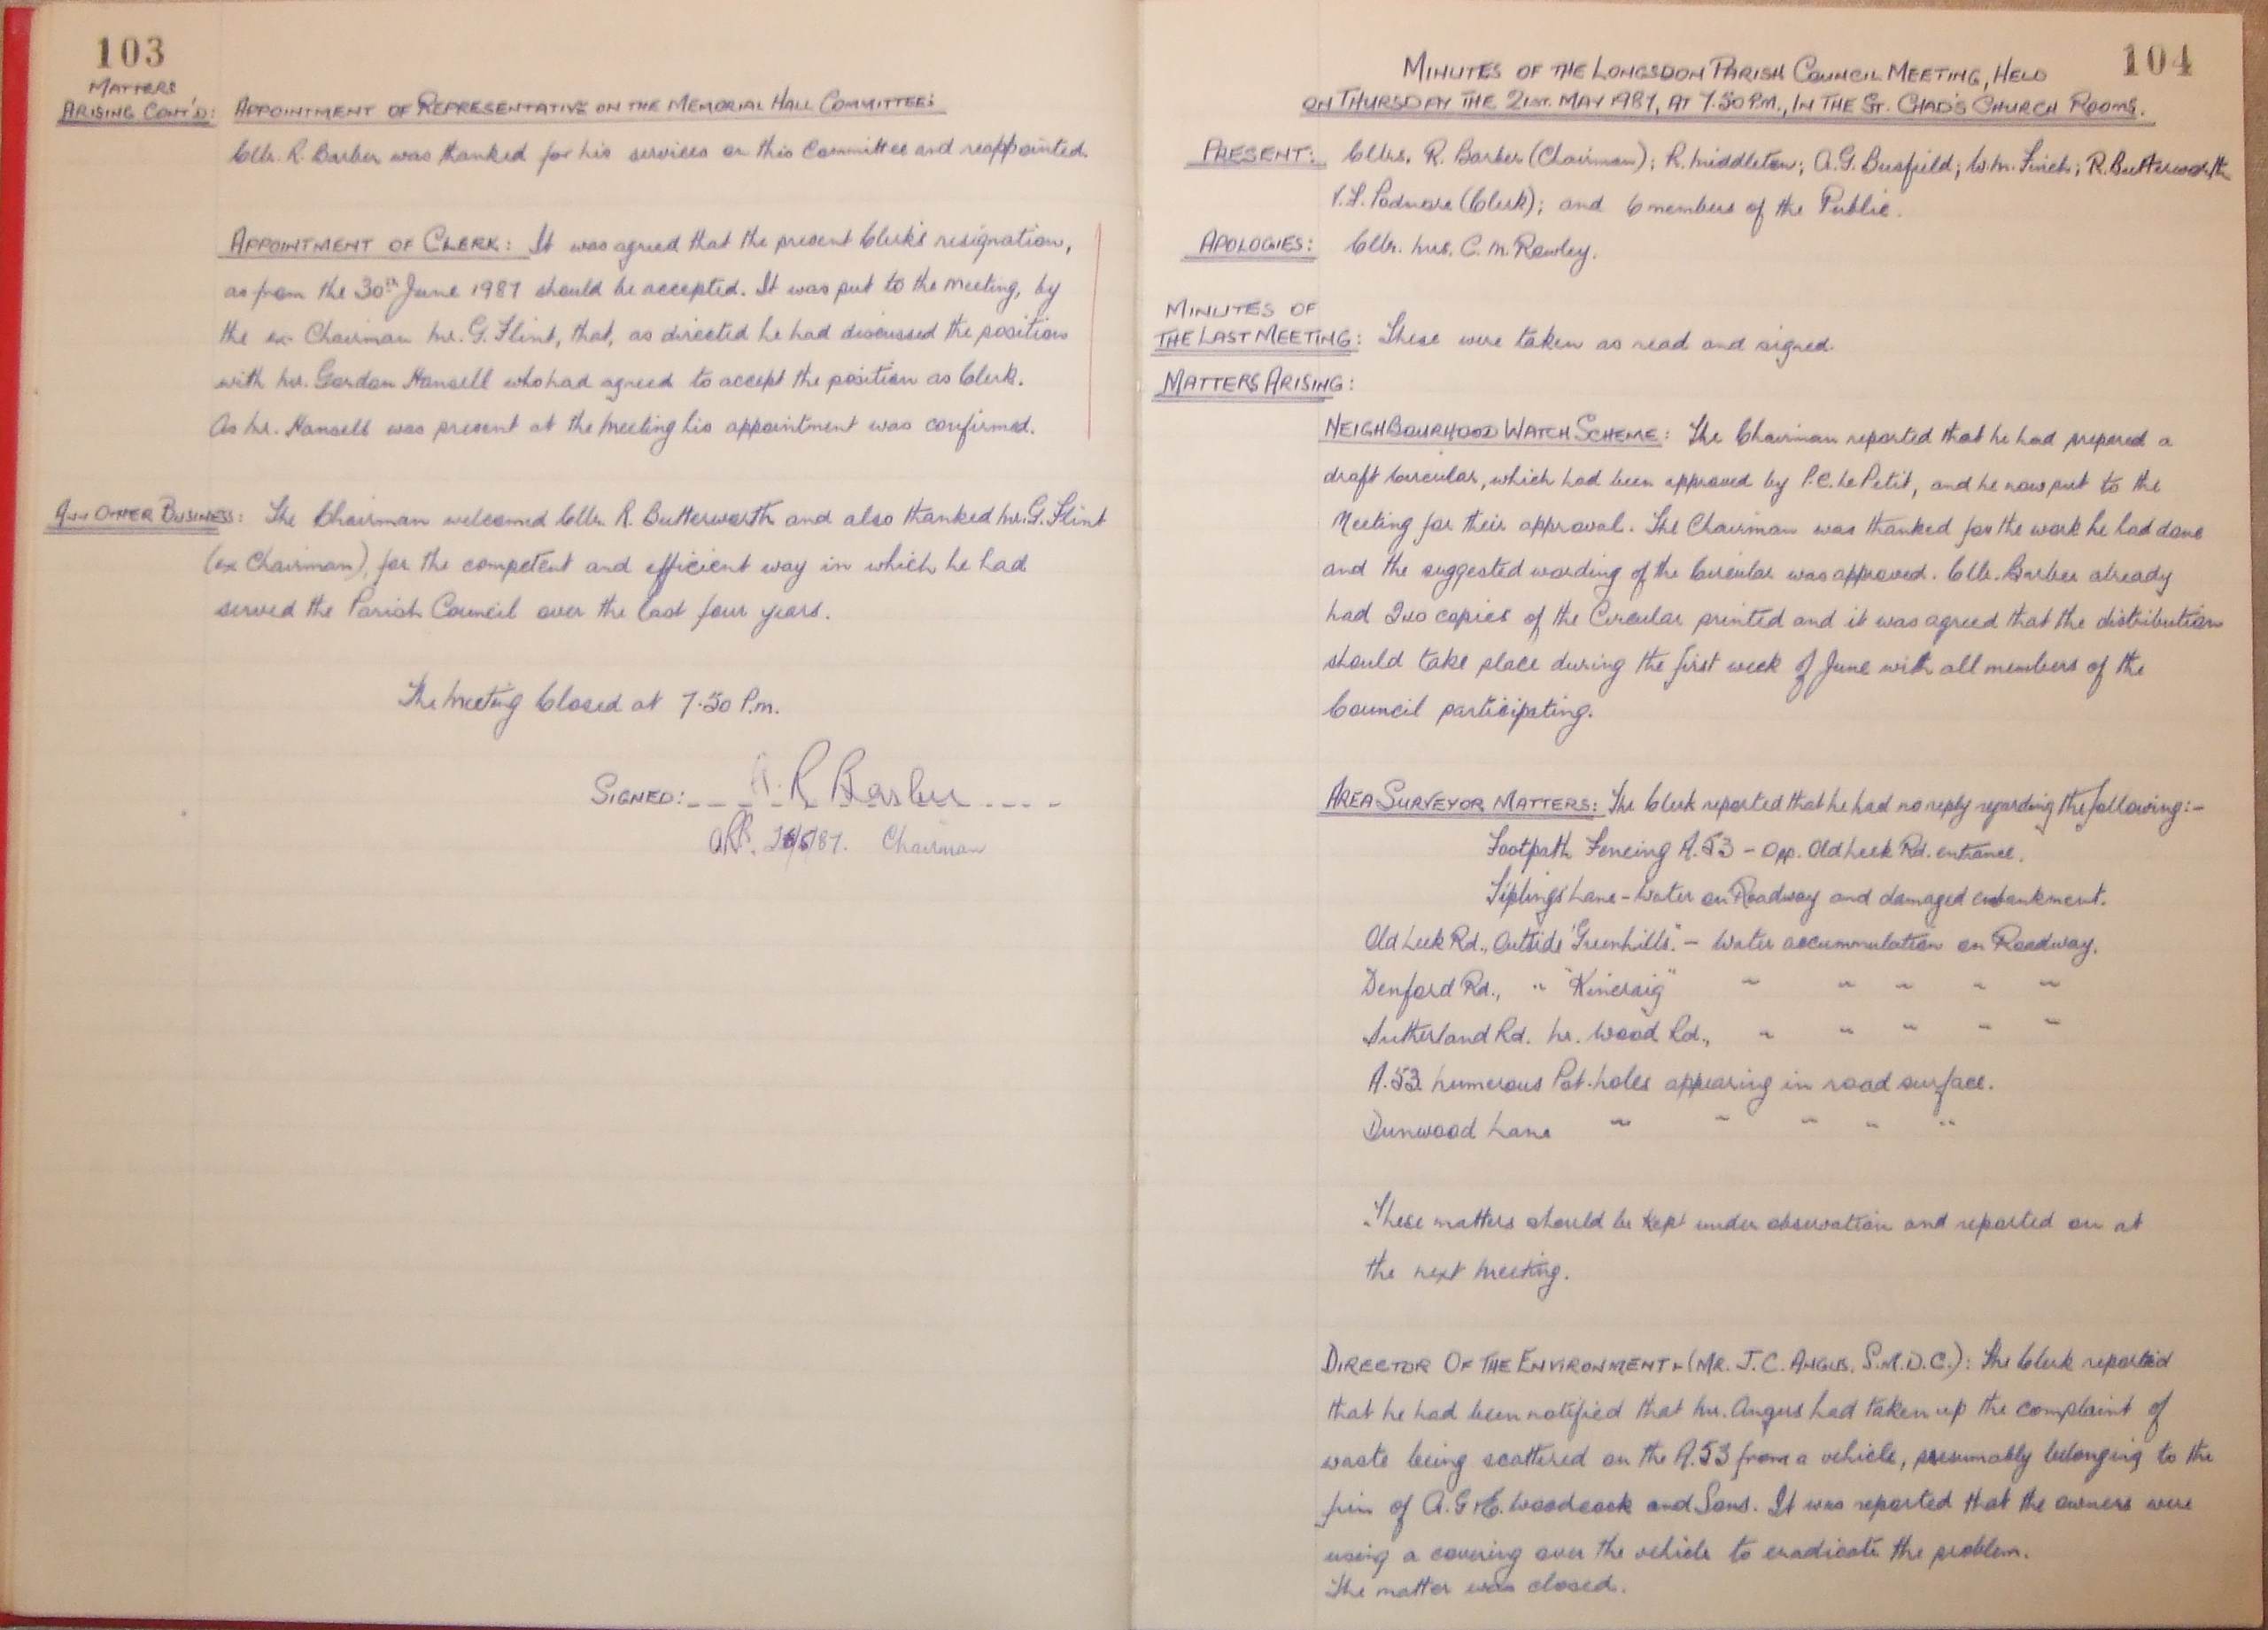 103
MATTERS
ARISING CONT'D: APPOINTMENT OF REPRESENTATIVE ON THE MEMORIAL HALL COMMITTEE:
Cllr. R. Barber was thanked for his services on this Committee and reappointed.
APPOINTMENT OF CLERK: It was agreed that the present Clerk's resignation,
as from the 30th June 1987 should be accepted. It was put to the Meeting, by
the ex- Chairman Mr. G. Flint, that, as directed he had discussed the position
with Mr. Gordon Hansell who had agreed to accept the position as Clerk.
As Mr. Hansell was present at the Meeting his appointment was confirmed.
ANY OTHER BUSINESS: The Chairman welcomed Cllr. R. Butterworth and also thanked Mr. G. Flint
(ex Chairman), for the competent and efficient way in which he had
served the Parish Council over the last four years.
The Meeting Closed at 7.30 P.m.
SIGNED: A. R Barber
ARB. 87. Chairman
104
MINUTES OF THE LONGSDON PARISH COUNCIL MEETING, HELD
ON THURSDAY THE 21ST. MAY 1987, AT 7.30 P.M., IN THE ST. CHAD'S CHURCH ROOMS.
PRESENT: Cllrs. R. Barber (Chairman); R. Middleton; A.G. Busfield; W.M. Finch; R. Butterworth
(Clerk); and 6 members of the Public.
APOLOGIES: Cllr. Mrs. C. M. Rowley.
MINUTES OF
THE LAST MEETING: These were taken as read and signed.
MATTERS ARISING:
NEIGHBOURHOOD WATCH SCHEME: The Chairman reported that he had prepared a
draft Circular, which had been approved by P.C. Le Petit, and he now put to the
Meeting for their approval. The Chairman was thanked for the work he had done
and the suggested wording of the Circular was approved. Cllr. Barber already
had 200 copies of the Circular printed and it was agreed that the distribution
should take place during the first week of June with all members of the
Council participating.
AREA SURVEYOR MATTERS: The Clerk reported that he had no reply regarding the following:-
Footpath Fencing A.53 - Opp. Old Leek Rd. entrance.
Siplings Lane - Water on Roadway and damaged embankment.
Old Leek Rd., Outside "Greenhills". - Water accummulation on Roadway.
Denford Rd., " "Kincraig" " " " " "
Sutherland Rd. Nr. Wood Rd., " " " " "
A.53. Numerous Pot-holes appearing in road surface.
Dunwood Lane " " " " "
These matters should be kept under observation and reported on at
the next Meeting.
DIRECTOR OF THE ENVIRONMENT - (MR. J. C. ANGUS, S.M.D.C.): The Clerk reported
that he had been notified that Mr. Angus had taken up the complaint of
waste being scattered on the A.53 from a vehicle, presumably belonging to the
firm of A.G & E. Woodcock and Sons. It was reported that the owners were
using a covering over the vehicle to eradicate the problem.
The matter was closed.